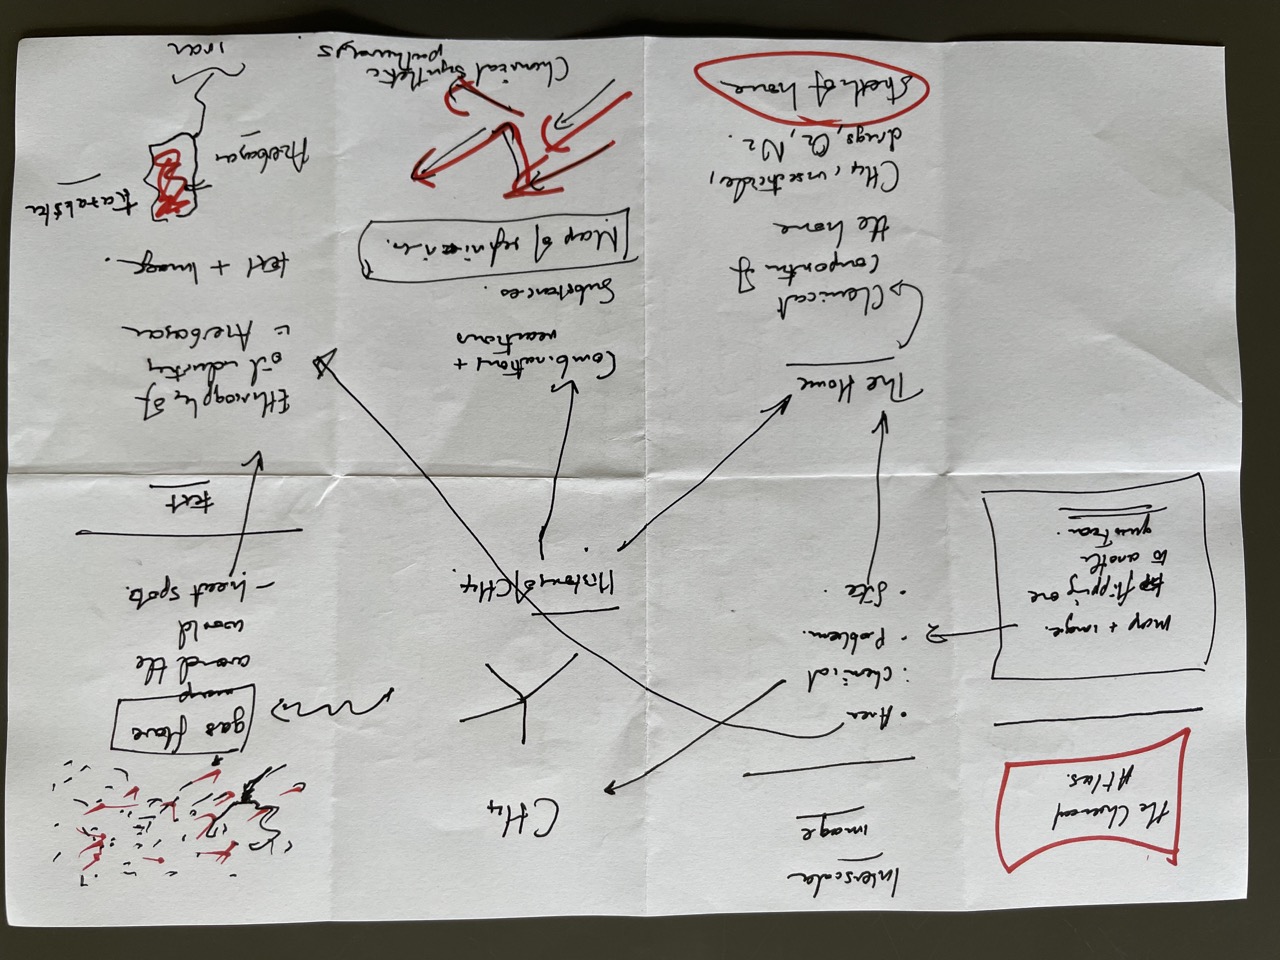 the Chemical
Atlas.
map + image.
flipping one
to another
question.
Interscalar
image
• Area
: chemical
• Problem.
• Site.
The Home
Chemical
composition of
the home
CH4, insecticides,
drugs, O2, N2.
Sketch of home
CH4
History of CH4.
Combinations +
reactions
Substances.
Map of refineries.
Chemical synthetic
pathways.
gas flare
map
around the
world
- heat spots.
text
Ethnography of
oil industry
in Azerbajan
text + Image.
Kazakstan
Azerbajan
iran